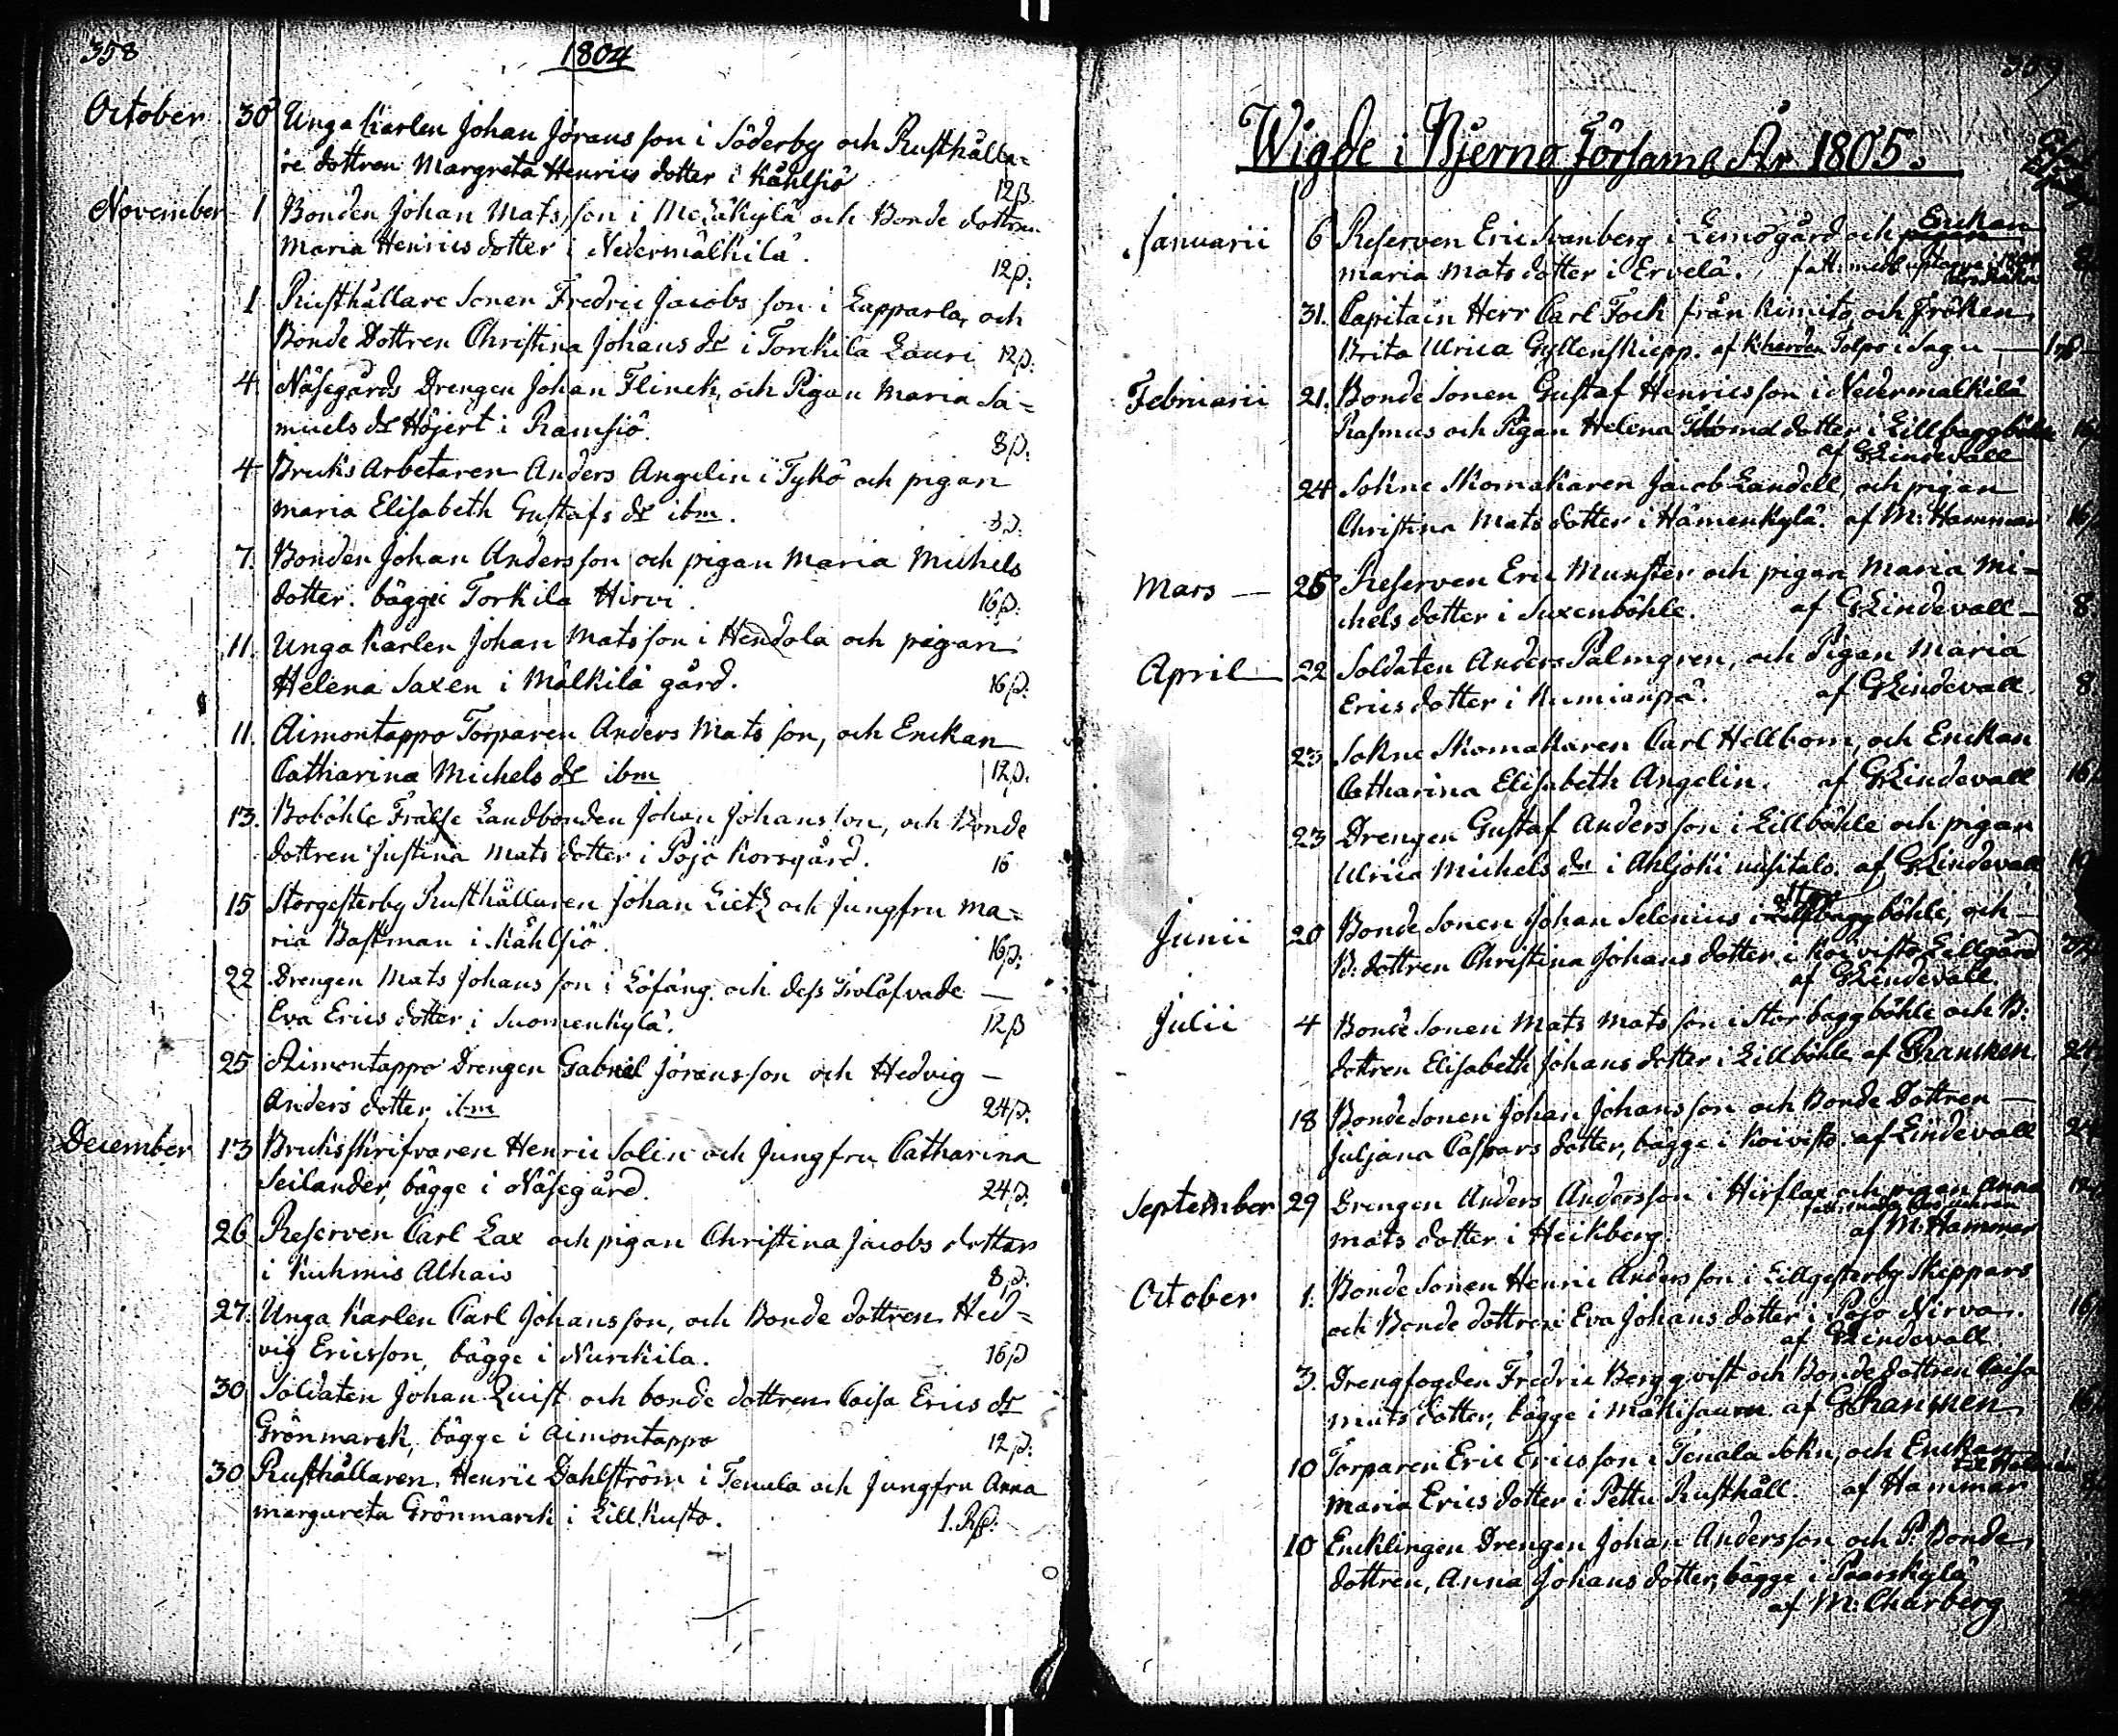 358
1804
October 30 Unga Karlen Johan Jörans son i Söderby och Rusthålla=
re dottren Margreta Henrics dotter i Kåhlsjö 12ß
November 1 Bonden Johan Mats son i Mekäkylä och Bonde dottren
Maria Henrics dotter i Nedermälkilä. 12ß:
1 Rusthållare Sonen Fredric Jacobs son i Lapparla, och
Bonde Dottren Christina Johans dr i Torkila Lauri 12ß:
4. Näsegårds Drengen Johan Flinck, och Pigan Maria Sa=
muels dr Höjert i Ramsiö. 8ß:
4 Bruks Arbetaren Anders Angelin i Tykö och pigan
Maria Elisabeth Gustafs dr ibm. 8ß.
7. Bonden Johan Andersson och pigan Maria Michels
dotter. bägge i Torkila Hirvi. 16ß:
11. Unga Karlen Johan Matsson i Hendola och pigan
Helena Saxen i Mälkilä gård. 16ß:
11. Aimontappo Torparen Anders Mats son, och Enckan
Catharina Michels dr ibm 12ß.
13. Boböhle Frälse Landbonden Johan Johansson, och Bonde
dottren Justina Mats dotter i Pojo Korsgård. 16
15 Storgesterby Rusthållaren Johan Lietz och Jungfru Ma=
ria Bastman i Kåhlsiö. 16ß:
22 Drengen Mats Johans son i Löfång och dess Trolåfvade —
Eva Erics dotter i Suomenkylä. 12ß
25 Aimontappo Drengen Gabriel Jöransson och Hedvig —
Anders dotter, ibm 24ß:
December 13 Bruksskrifvaren Henric Solin och Jungfru Catharina
Seilander, bägge i Näsegård. 24ß.
26 Reserven Carl Lax och pigan Christina Jacobs dotter
i Kuhmis Alhais 8ß.
27. Unga Karlen Carl Johansson, och Bonde dottren Hed=
vig Ericsson, bägge i Nurckila. 16ß
30 Soldaten Johan Quist och bonde dottren Caisa Erics dr
Grönmarck, bägge i Aimontappo 12ß:
30 Rusthållaren Henric Dahlström i Tenala och Jungfru Anna
Margareta Grönmarck i Lill Kusto. 1. Rß:
359
Wigde i Bjerno Församl År 1805.
Januarii 6 Reserven Eric Svanberg i Lemögård och Enckan
Maria Mats dotter i Ervelä.
31. Capitain Herr Carl Fock från Kimito och Fröken
Brita Ulrica Gyllenskepp. af Kherden Tolpo i Sagu —
Februarii 21. Bonde Sonen Gustaf Henricsson i Nedermälkilä
Rasmus och Pigan Helena Thomæ dotter i Lillbaggböhle
af GLindevall
24 Sokne Skomakaren Jacob Landell, och pigan
Christina Mats dotter i Hämenkylä. af M: Hammar
Mars — 25 Reserven Eric Munster och pigan Maria Mi=
chels dotter i Saxenböhle. af GLindevall — 8
April 22 Soldaten Anders Palmgren, och Pigan Maria
Erics dotter i Kumianpä. af GLindevall. 8
23 Sokne Skomakaren Carl Hellbom, och Enckan
Catharina Elisabeth Angelin. af GLindevall 16
23 Drengen Gustaf Andersson i Lillböhle och pigan
Ulrica Michels dr i Ahljoki uusitalo. af GLindevall
Junii 20 Bonde Sonen Johan Selenius i Stor baggböhle, och —
B: dottren Christina Johans dotter i Koivisto Lillgård
af GLindevall.
Julii 4 Bonde Sonen Mats Mats son i Stor baggböhle och B:
dottren Elisabeth Johans dotter i Lillböhle af 24
18 Bonde Sonen Johan Johans son och Bonde Dottren —
Juljana Caspars dotter, bägge i Koivisto. af Lindevall 24
September 29 Drengen Anders Andersson i Hirflax och pigan Anna
Mats dotter i Heikberg. af M: Hammar
October 1. Bonde Sonen Henric Anders son i Lillgesterby Skeppars
och Bonde dottren Eva Johans dotter i Pojo Nirva. 16
af GLindevall
3. Drengfogden Fredric Bergqvist och Bonde dottren Caisa
Mats dotter, bägge i Mäkisauru. af 16
10 Torparen Eric Ericsson i Tenala Sokn, och Enckan
Maria Erics dotter i Pettu Rusthåll. af Hammar
10 Encklingen Drengen Johan Andersson och P. Bonde
dottren, Anna Johans dotter, bägge i Paarskylä
af M: Charberg